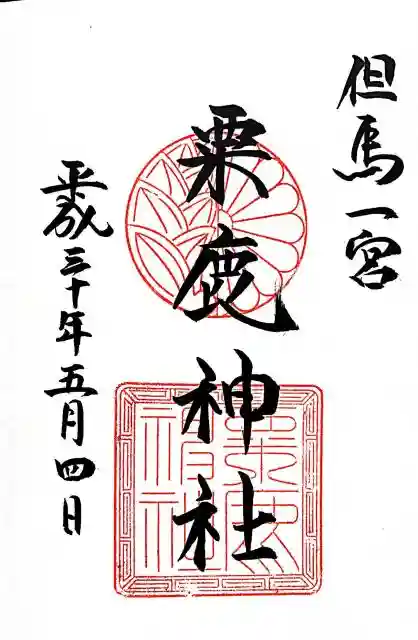 但馬一宮
粟鹿神社
平成三十年五月四日